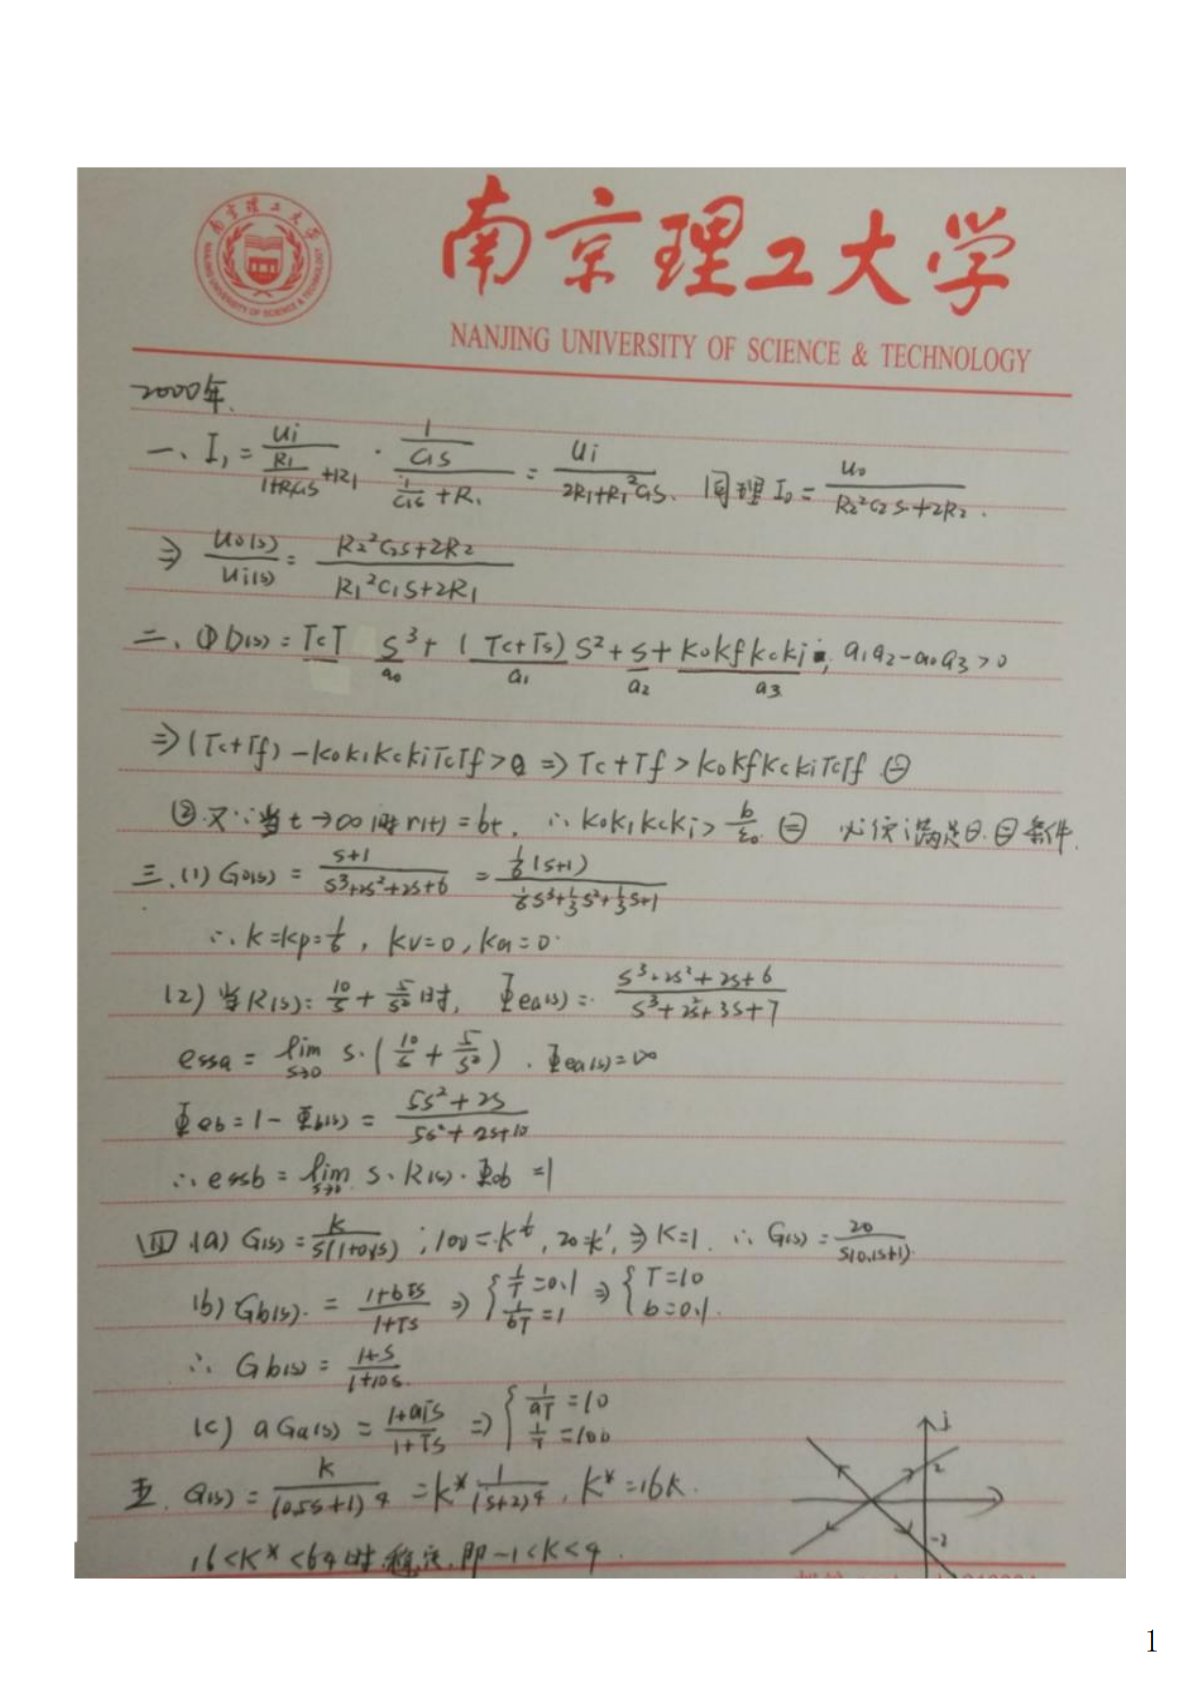 南京理工大学
NANJING UNIVERSITY OF SCIENCE & TECHNOLOGY
2000年.
一、I₁ = Ui/(R₁/(1+R₁C₁S)+R₁) · (1/C₁S)/(1/C₁S+R₁) = Ui/(2R₁+R₁²C₁S). 同理 I₀ = U₀/(R₂²C₂S+2R₂).
⇒ U₀(s)/Ui(s) = (R₂²C₂S+2R₂)/(R₁²C₁S+2R₁)
二、① D(s) = TcT S³ + (Tc+Ts)S² + S + K₀KfKcKi; a₁a₂-a₀a₃>0
a₀ a₁ a₂ a₃
⇒ (Tc+Tf) - K₀K₁KcKiTcTf > 0 ⇒ Tc+Tf > K₀KfKcKiTcTf ㊀
② 又∵当t→∞时 r(t)=bt, ∴ K₀K₁KcKi > b/ε₀ ㊁ 必须满足㊀.㊁条件.
三.(1) G₀(s) = (S+1)/(S³+2S²+2S+6) = 1/6(S+1)/(1/6S³+1/3S²+1/3S+1)
∴ K=Kp=1/6, Kv=0, Ka=0.
(2) 当R(s)=10/S+5/S²时, Φea(s)=(S³+2S²+2S+6)/(S³+2S²+3S+7)
essa = lim s→0 S·(10/S+5/S²)·Φea(s)=∞
Φeb = 1-Φb(s) = (5S²+2S)/(5S²+2S+10)
∴ essb = lim s→0 S·R(s)·Φeb = 1
四.(a) G(s) = K/(S(1+0.1S)); 100=K, 20=K', ⇒ K=1. ∴ G(s) = 20/(S(0.1S+1)).
(b) Gb(s) = (1+bTS)/(1+TS) ⇒ {1/T=0.1 1/bT=1 ⇒ {T=10 b=0.1.
∴ Gb(s) = (1+S)/(1+10S).
(c) aGa(s) = (1+aTS)/(1+TS) ⇒ {1/aT=10 1/T=100
五. G(s) = K/(0.5S+1)⁴ = K* 1/(S+2)⁴, K*=16K.
16<K*<64时稳定, 即-1<K<4.
j
2
-2
1